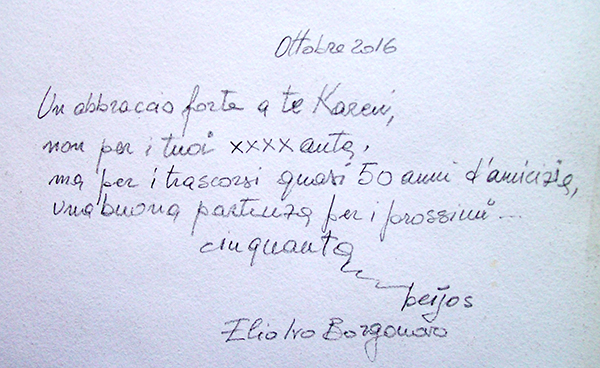 Ottobre 2016
Un abbraccio forte a te Karen,
non per i tuoi xxxxanta,
ma per i trascorsi quasi 50 anni d'amicizia,
una buona partenza per i prossimi...
cinquanta
beijos
Borgonovo